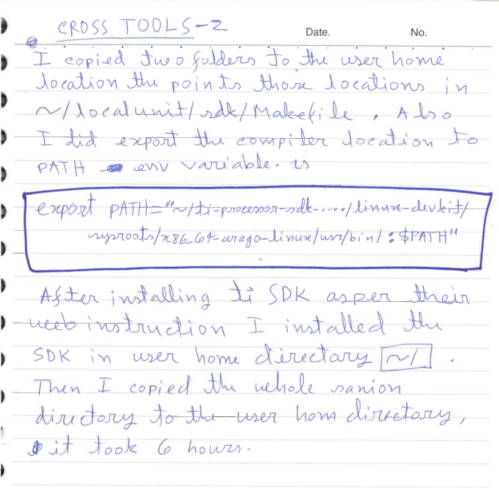 CROSS TOOLS-2
Date. No.
I copied two folders to the user home
location the points those locations in
~/localunit/sdk/Makefile. Also
I did export the compiler location to
PATH env variable. is
export PATH="~/ti-processor-sdk-..../linux-devkit/
sysroots/x86_64-arago-linux/usr/bin/:$PATH"
After installing ti SDK asper their
web instruction I installed the
SDK in user home directory ~/ .
Then I copied the whole
directory to the user hom directory,
it took 6 hours.